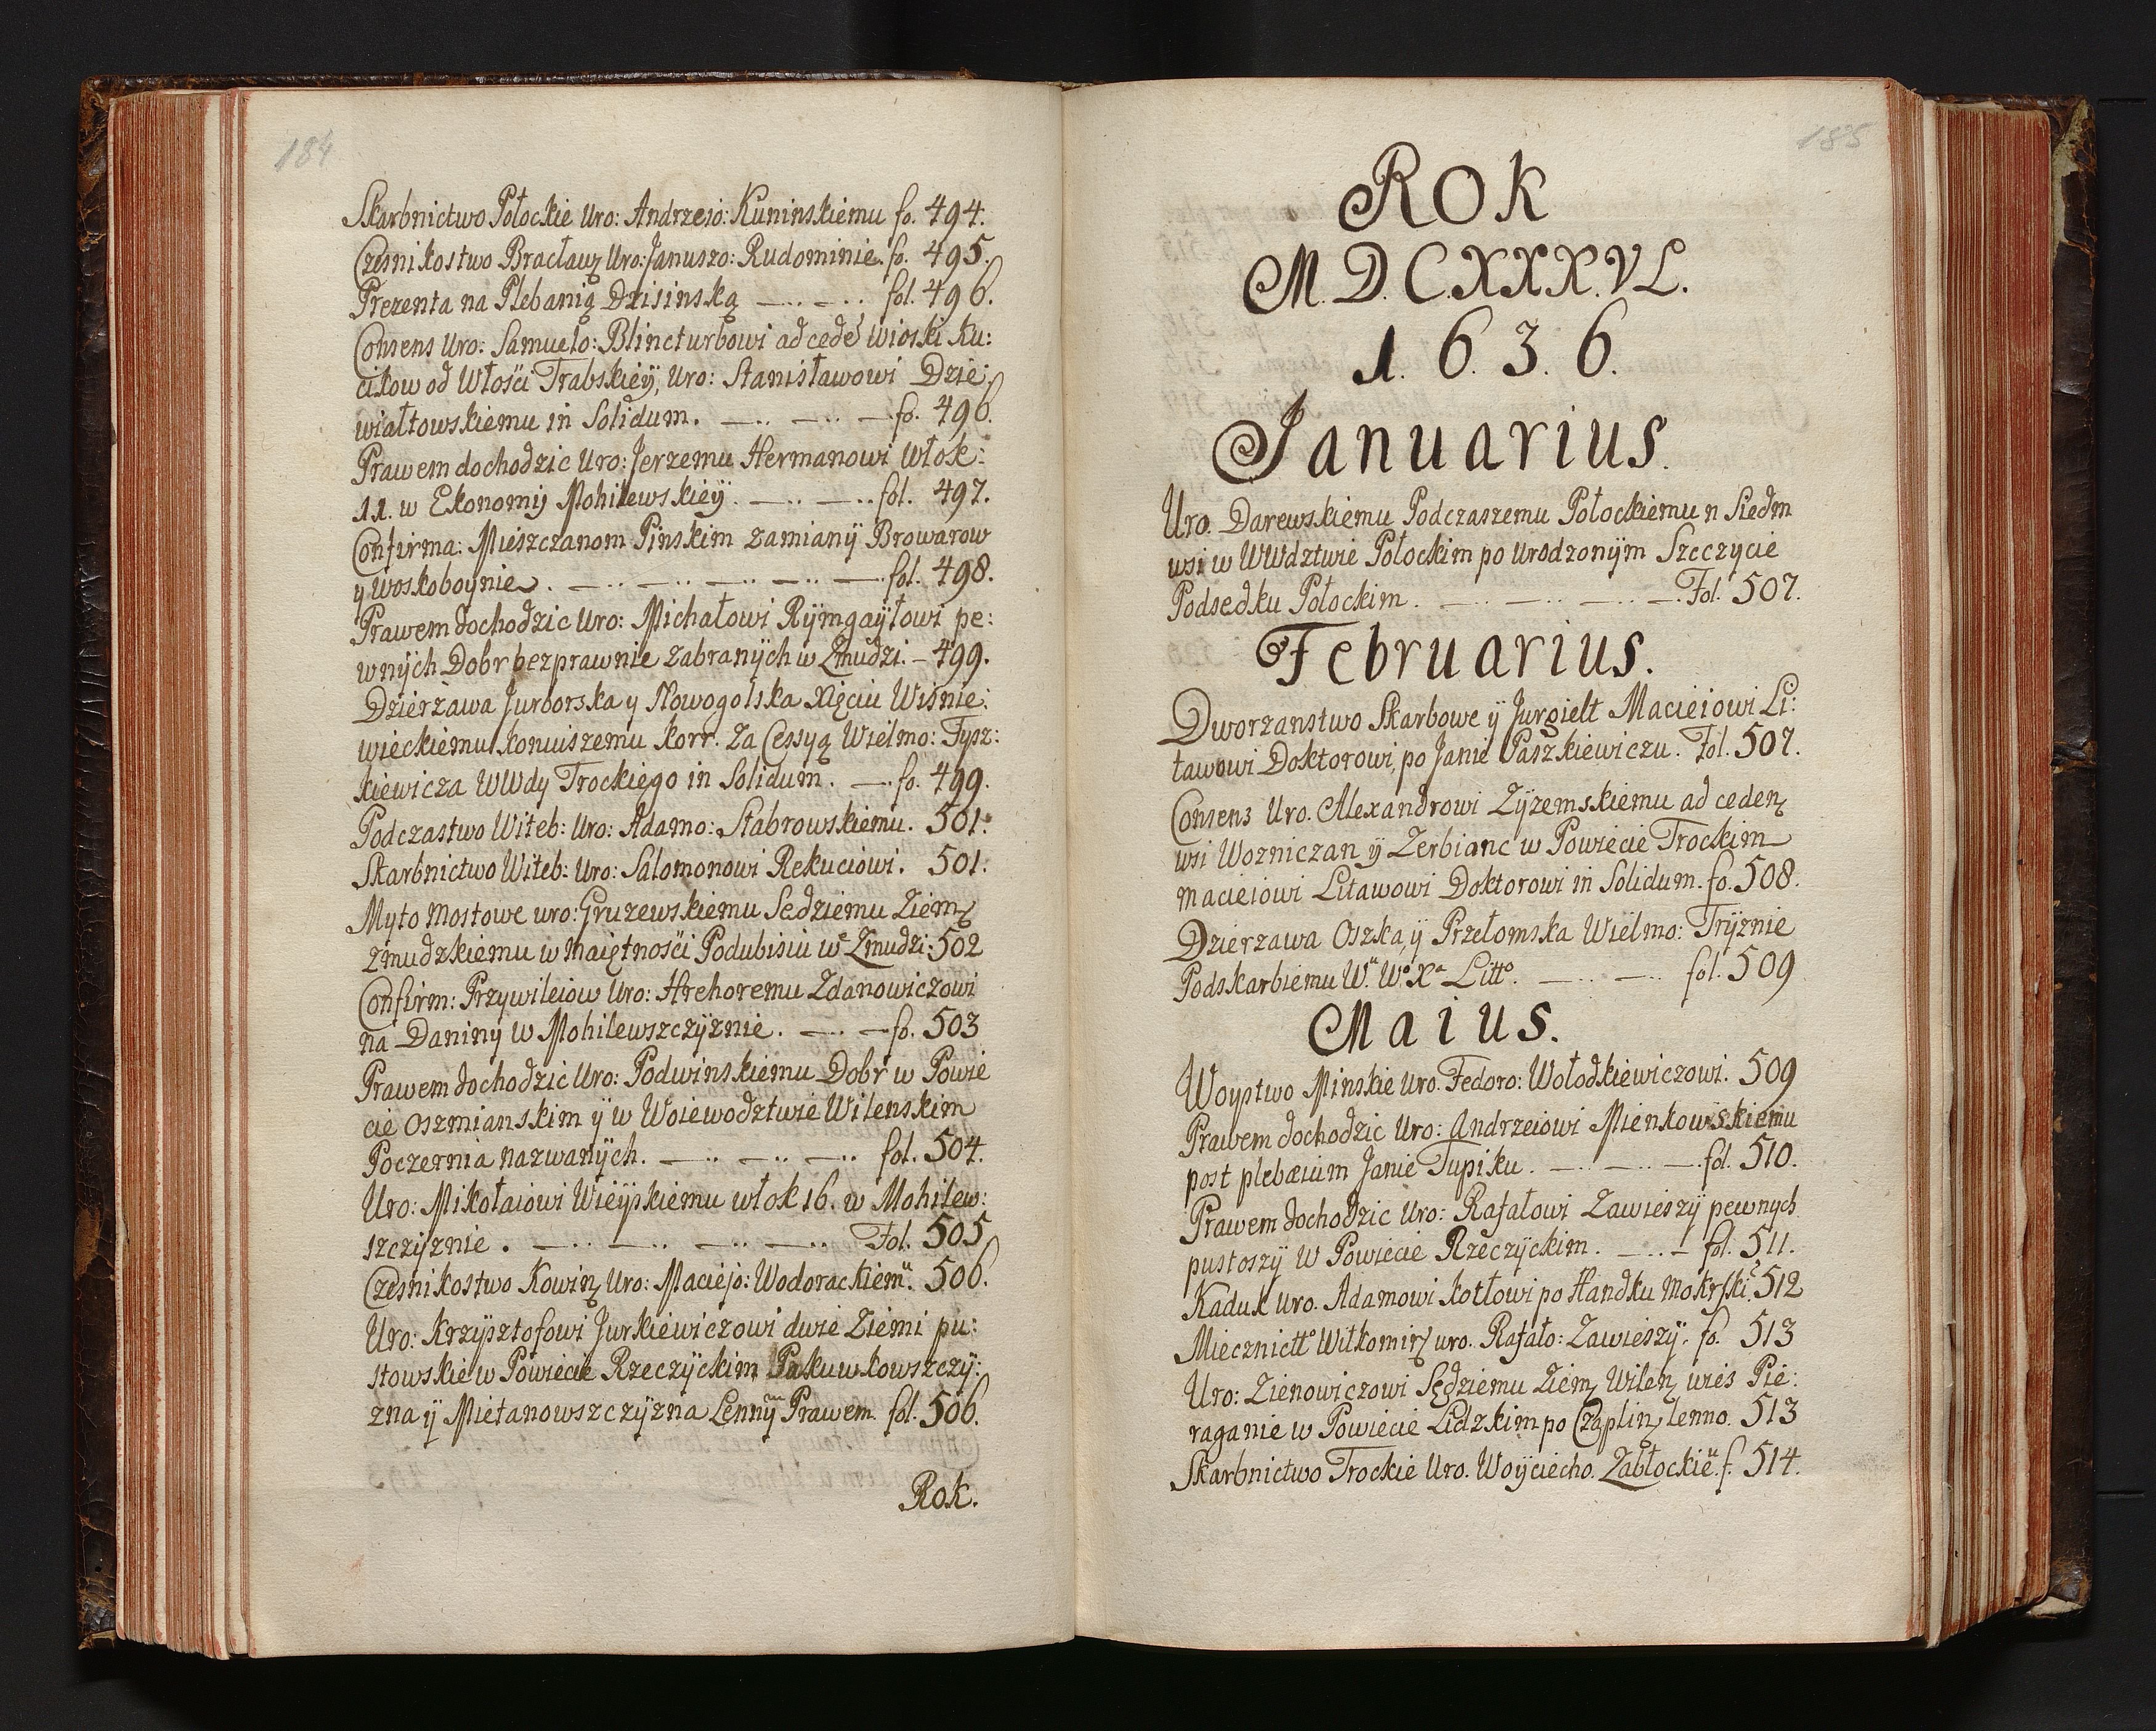 184
Skarbnictwo Połockie Uro: Andrzeio: Kuninskiemu fo. 494.
Czesnikostwo Bracław Uro: Januszo: Rudominie. fo. 495.
Prezenta na Plebanią Dzisinską —..—.. fol. 496.
Consens Uro: Samuelo: Blincturbowi ad cede wioski Ku:
cikow od Włości Trabskieÿ, Uro: Stanisławowi Dzie:
wiałtowskiemu in Solidum. —..—..— fo. 496.
Prawem dochodzic Uro: Jerzemu Hermanowi Włok:
11. w Ekonomij Mohilewskieÿ. —..—.. fol. 497.
Confirma: Mieszczanom Pinskim zamianÿ Browarow
y Woskoboynie. —..—..—..—..— fol. 498.
Prawem dochodzic Uro: Michałowi Rÿmgaÿłowi pe:
wnÿch Dobr bezprawnie zabranÿch w Zmudzi. — 499.
Dzierzawa Jurborska y Nowogolska Xięciu Wisnie:
wieckiemu Koniuszemu Korr. Za Cessyą Wielmo: Tysz:
kiewicza WWdy Trockiego in Solidum. — fo. 499.
Podczastwo Witeb: Uro: Adamo: Stabrowskiemu. 501.
Skarbnictwo Witeb: Uro: Salomonowi Rekuciowi. 501.
Myto Mostowe uro: Gruzewskiemu Sedziemu Ziem
zmudzkiemu w maiętności Podubisiu we Zmudzi: 502
Confirm: Przywileiow Uro: Hrehoremu Zdanowiczowi
na Daninÿ w Mohilewszczÿznie. —..— fo. 503
Prawem dochodzic Uro: Podwinskiemu Dobr w Powie
cie Oszmianskim ÿ w Woiewodztwie Wilenskim
Poczernia nazwanÿch. —..—..—.. fol. 504.
Uro: Mikołaiowi Wieÿskiemu włok 16. w Mohilew:
szczÿznie. —..—..—..—.. Fol. 505
Czesnikostwo Kowin Uro: Maciejo: Wodorackiemu. 506.
Uro: Krzÿsztofowi Jurkiewiczowi dwie Ziemi pu:
stowskie w Powiecie Rzeczÿckim Pukuwkowszczÿ:
zna ÿ Mietanowszczÿzna Lennÿm Prawem. fol. 506.
Rok.
185
Rok
M.D.CXXX.VI.
1.6.3.6.
Januarius.
Uro. Darewskiemu Podczaszemu Połockiemu n Siedm
wsi w WWdztwie Połockim po Urodzonÿm Szczycie
Podsedku Połockim. —..—..—..— Fol. 507.
Februarius.
Dworzanstwo Skarbowe ÿ Jurgielt Macieiowi Li:
tawowi Doktorowi, po Janie Paszkiewiczu. Fol. 507.
Consens Uro. Alexandrowi Zÿzemskiemu ad ceden
wsi Wozniczan ÿ Zerbianc w Powiecie Trockim
Macieiowi Litawowi Doktorowi in Solidum. fo. 508.
Dzierzawa Oszka, ÿ Przełomska Wielmo: Trÿznie
Podskarbiemu Wu Wo Xa Litto. —..—.. fol. 509
Maius.
Woyстwo Minskie Uro. Fedoro: Wołodkiewiczowi. 509
Prawem dochodzic Uro: Andrzeiowi Mienkowskiemu
post plebæium Janie Tupiku. —..—..— fol. 510.
Prawem dochodzic Uro: Rafałowi Zawieszÿ pewnych
pustoszÿ w Powiecie Rzeczÿckim. —..— fol. 511.
Kaduk Uro. Adamowi Kotłowi po Handku Mokrski 512
Miecznictto Wiłkomir uro. Rafało: Zawieszÿ. fo. 513
Uro: Zienowiczowi Sędziemu Ziem Wilen wies Pie:
raganie w Powiecie Lidzkim po Czaplin lenno. 513
Skarbnictwo Trockie Uro. Woÿciecho. Zabłockieu. f. 514.